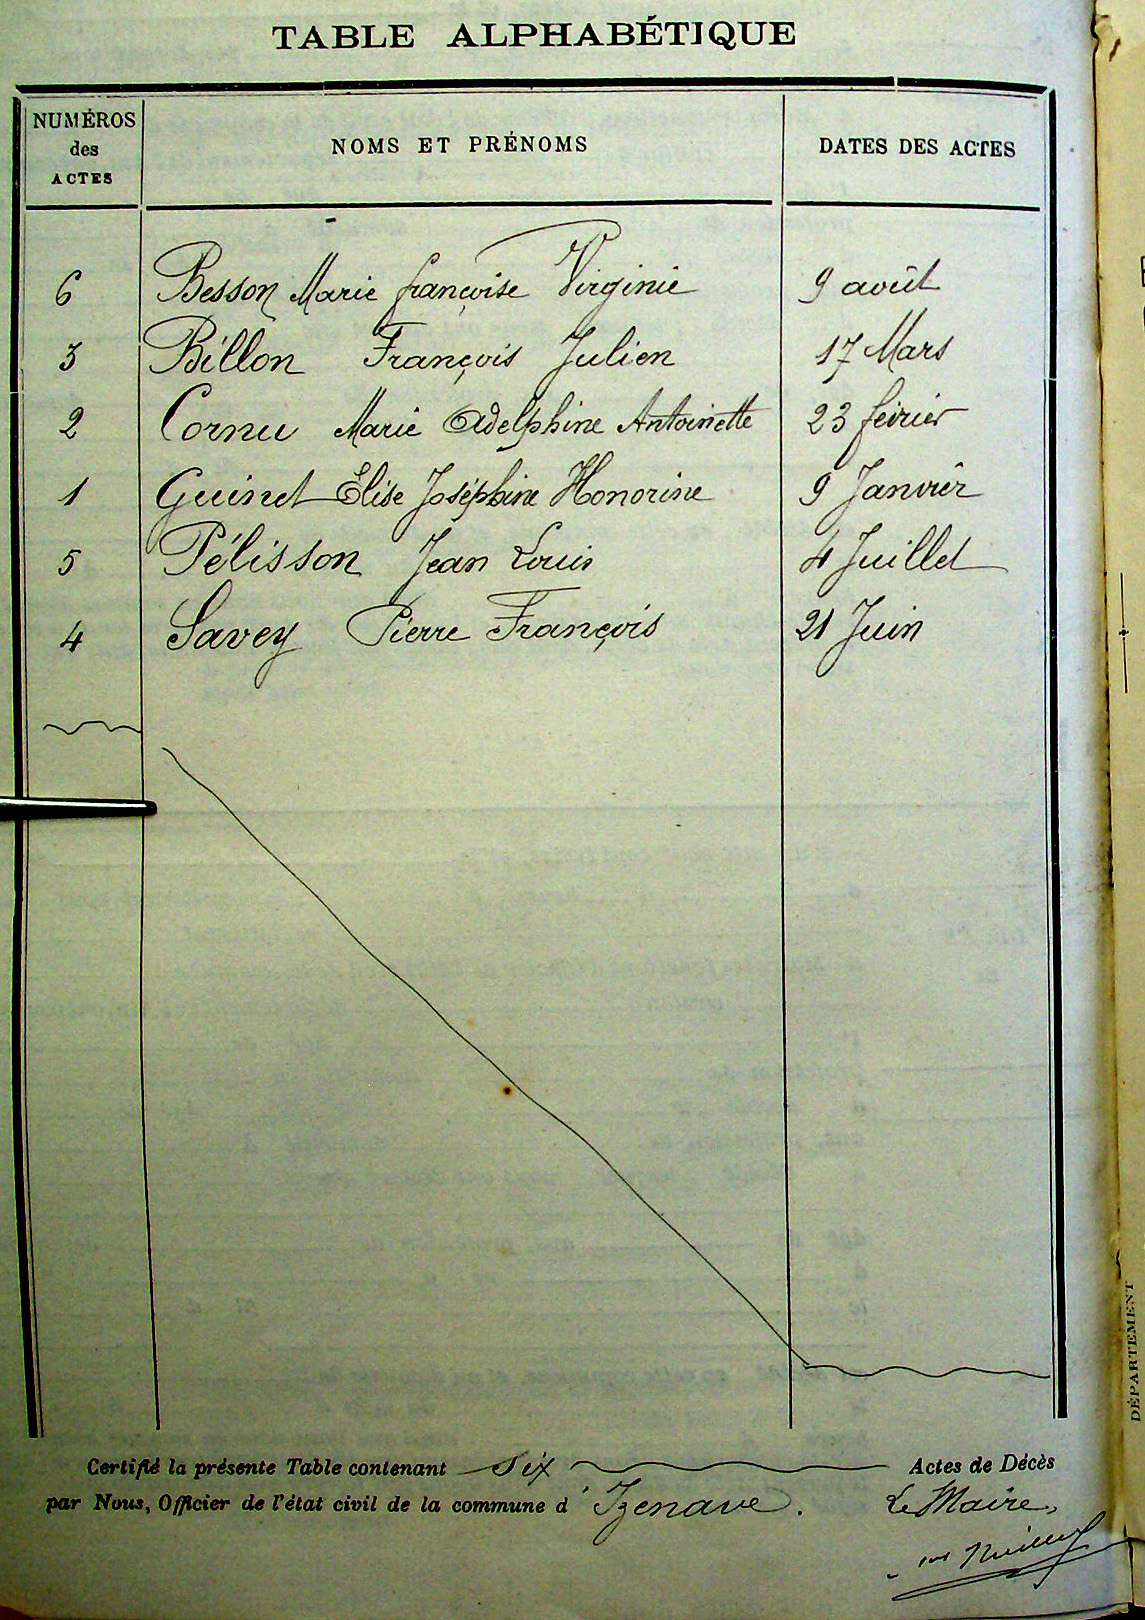 TABLE ALPHABÉTIQUE
NUMÉROS des ACTES NOMS ET PRÉNOMS DATES DES ACTES
6 Besson Marie françoise Virginie 9 août
3 Billon François Julien 17 Mars
2 Cornu Marie Adelphine Antoinette 23 février
1 Guinet Élise Joséphine Honorine 9 Janvier
5 Pélisson Jean Louis 4 Juillet
4 Savey Pierre François 21 Juin
Certifié la présente Table contenant six Actes de Décès
par Nous, Officier de l'état civil de la commune d'Izenave.
Le Maire,
DÉPARTEMENT